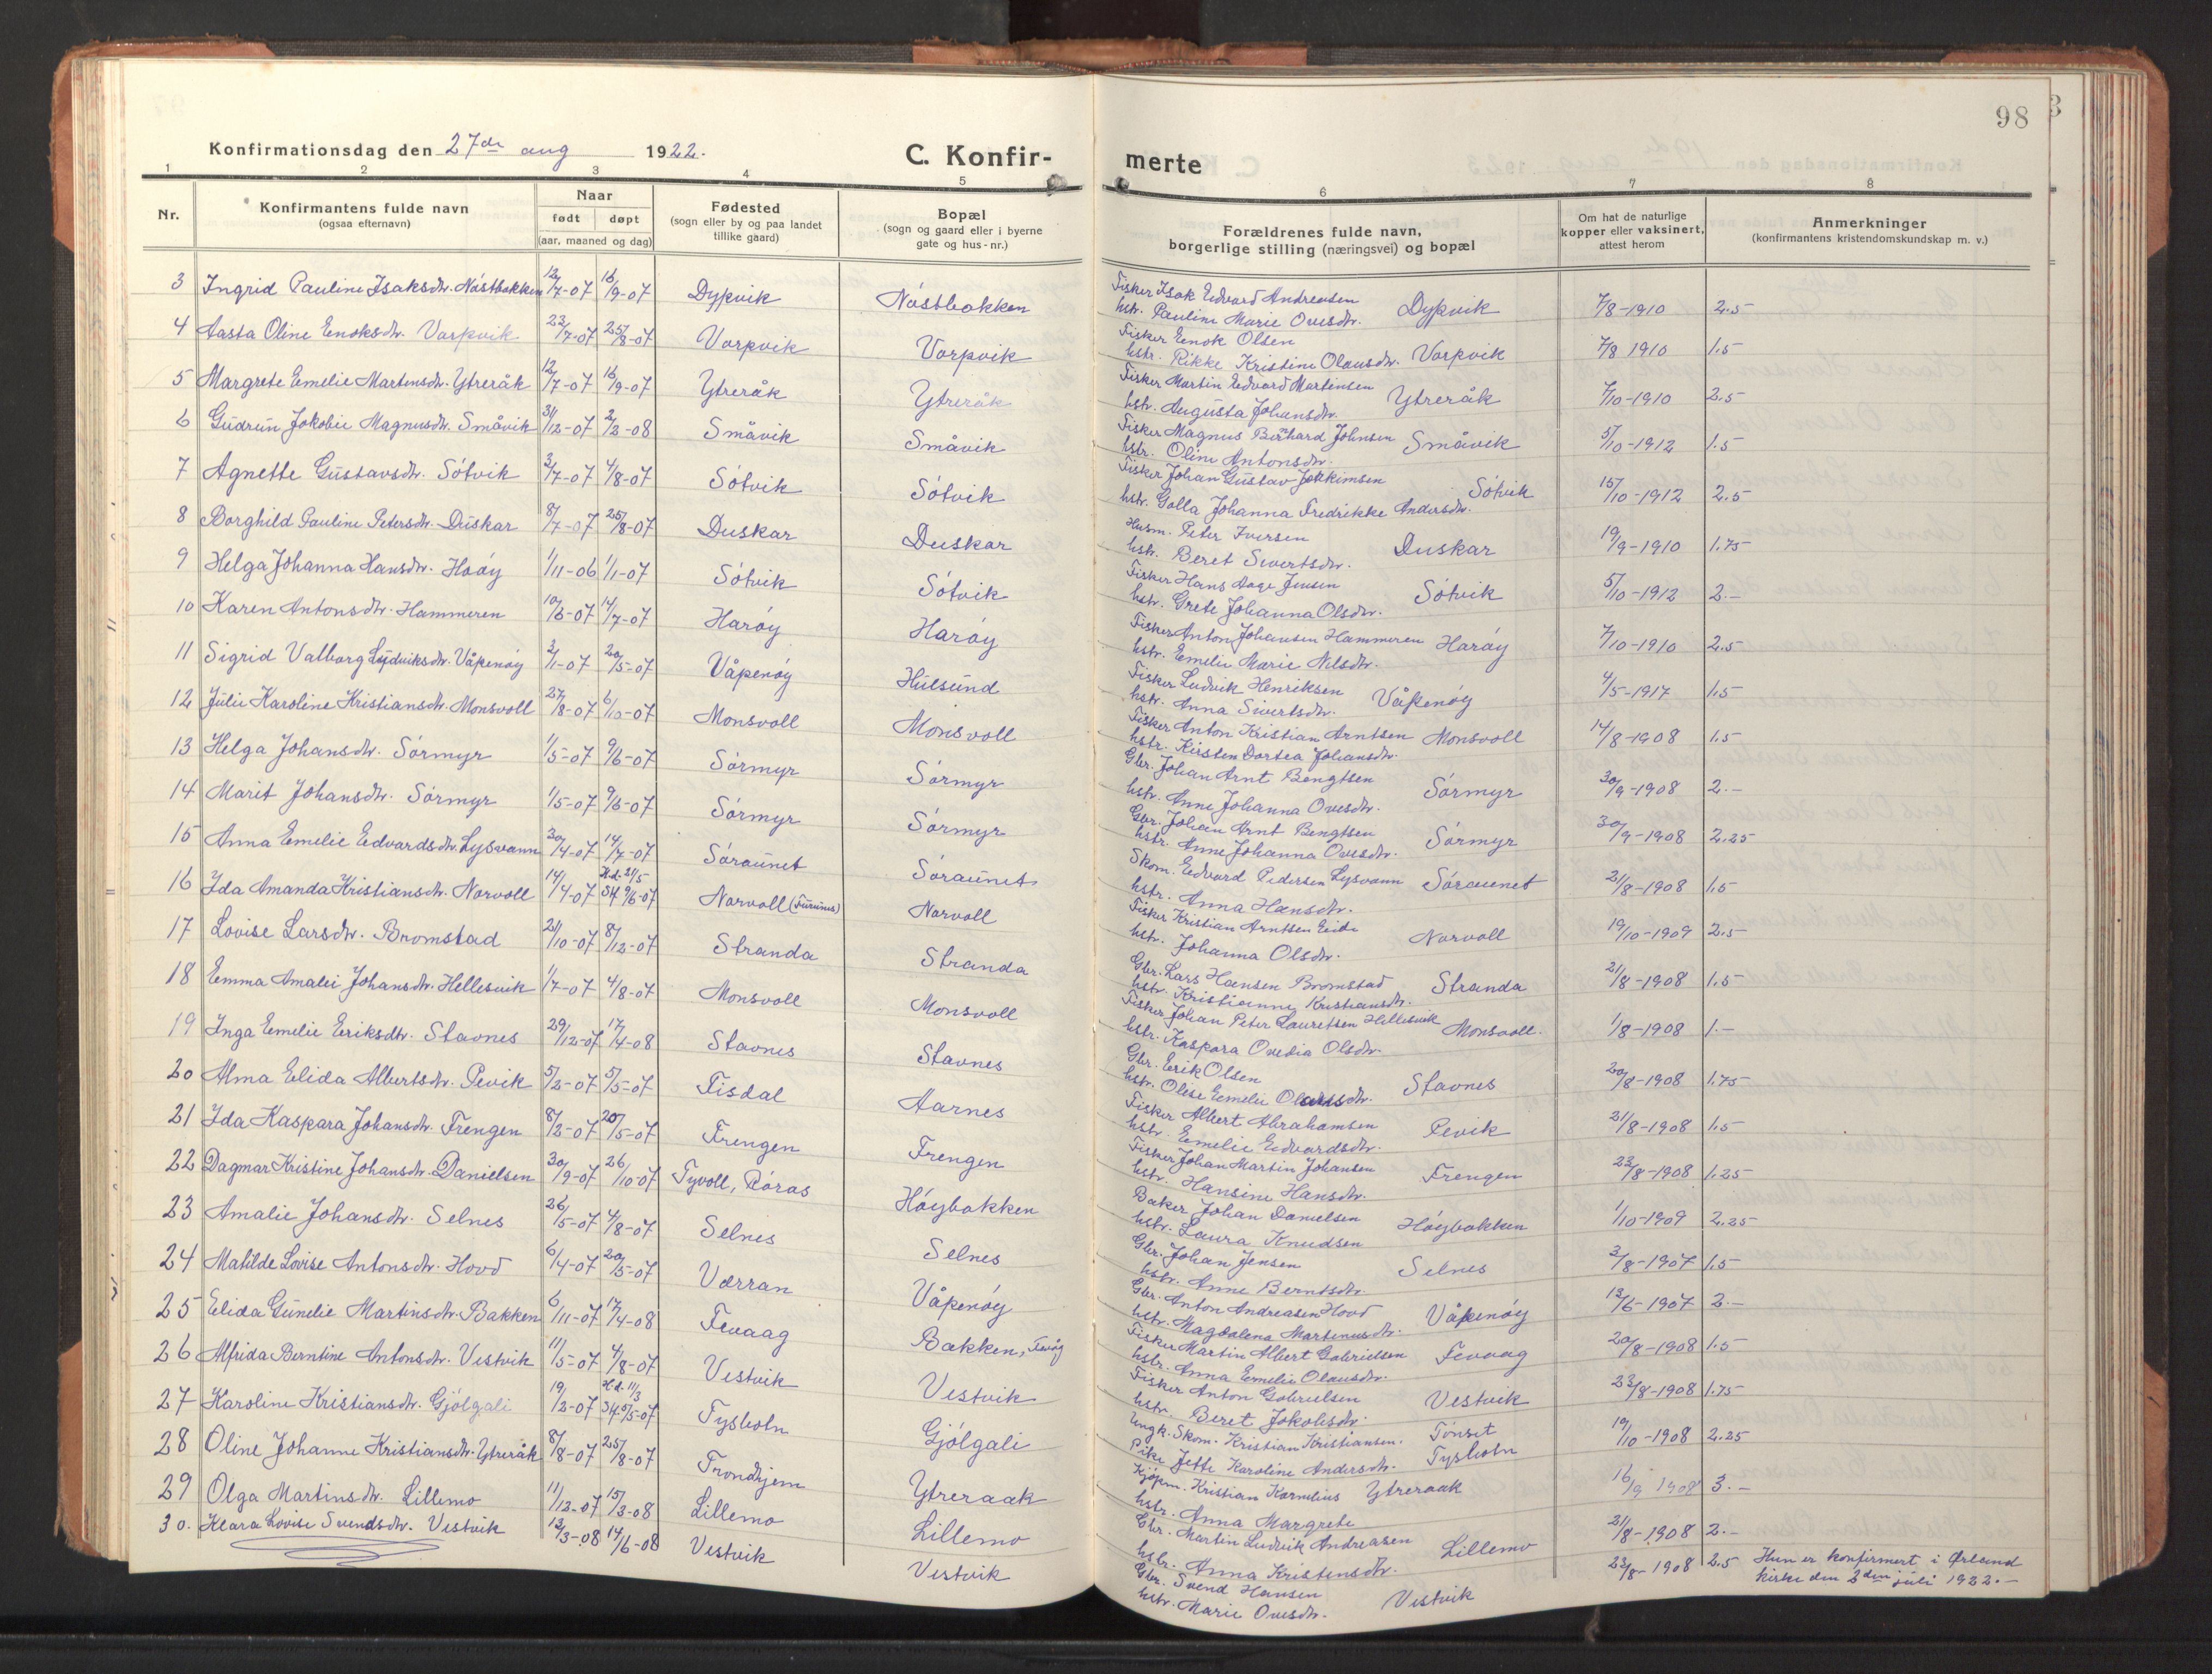 98
Konfirmationsdag den 27de aug 1922.
C. Konfir-
merte
1 2 3 4 5 6 7 8
Nr.
Konfirmantens fulde navn
(ogsaa efternavn)
Naar
født døpt
(aar, maaned og dag)
Fødested
(sogn eller by og paa landet
tillike gaard)
Bopæl
(sogn og gaard eller i byerne
gate og hus-nr.)
Forældrenes fulde navn,
borgerlige stilling (næringsvei) og bopæl
Om hat de naturlige
kopper eller vaksinert,
attest herom
Anmerkninger
(konfirmantens kristendomskundskap m. v.)
3 Ingrid Pauline Isaksdtr. Nástbakken 12/7-07 16/9-07 Dypvik Nástbakken
Fisker Isak Edvard Andreasen
hstr. Pauline Marie Ovesdtr. Dypvik 7/8-1910 2.5
4 Aasta Oline Enoksdtr. Varpvik 23/7-07 25/8-07 Varpvik Varpvik
Fisker Enok Olsen
hstr. Rikke Kristine Olausdtr. Varpvik 7/8 1910 1.5
5 Margrete Emelie Martensdtr. Ytreråk 12/7-07 16/9-07 Ytreråk Ytreråk
Fisker Martin Edvard Martinsen
hstr. Augusta Johansdtr. Ytreråk 7/10-1910 2.5
6 Gudrun Jakobie Magnusdtr. Småvik 31/12-07 2/2-08 Småvik Småvik
Fisker Magnus Bernhard Johnsen
hstr. Oline Antonsdtr. Småvik 5/10-1912 1.5
7 Agnette Gustavsdtr. Sótvik 3/7-07 4/8-07 Sótvik Sótvik
Fisker Johan Gustav Jokkimsen
hstr. Golla Johanna Fredrikke Andersdtr. Sótvik 15/10-1912 2.5
8 Borghild Pauline Petersdtr. Duskar 8/7-07 25/8-07 Duskar Duskar
Husm. Peter Iversen
hstr. Beret Sivertsdtr. Duskar 19/9-1910 1.75
9 Helga Johanna Hansdtr. Haóy 1/11-06 1/1-07 Sótvik Sótvik
Fisker Hans Aage Jensen
hstr. Grete Johanna Olsdtr. Sótvik 5/10-1912 2.-
10 Karen Antonsdtr. Hammeren 10/6-07 14/7-07 Haróy Haróy
Fisker Anton Johansen Hammeren
hstr. Emelie Marie Nilsdtr. Haróy 7/10-1910 2.5
11 Sigrid Valborg Ludviksdtr. Våpenóy 2/1-07 20/5-07 Våpenóy Hulsund
Fisker Ludvik Henriksen
hstr. Anna Sivertsdtr. Våpenóy 4/5-1917 1.5
12 Julie Karoline Kristiansdtr. Monsvoll 27/8-07 6/10-07 Monsvoll Monsvoll
Fisker Anton Kristian Arntsen
hstr. Kirsten Dortea Johansdtr. Monsvoll 14/8-1908 1.5
13 Helga Johansdtr. Sórmyr 1/5-07 9/6-07 Sórmyr Sórmyr
Gbr. Johan Arnt Bengtsen
hstr. Anne Johanna Ovesdtr. Sórmyr 30/9-1908 2.-
14 Marit Johansdtr. Sórmyr 1/5-07 9/6-07 Sórmyr Sórmyr
Gbr. Johan Arnt Bengtsen
hstr. Anne Johanna Ovesdtr. Sórmyr 30/9-1908 2.25
15 Anna Emelie Edvardsdtr. Lysvann 30/4-07 14/7-07 Sóraunet Sóraunet
Skom. Edvard Pedersen Lysvann
hstr. Anna Hansdtr. Sóraunet 21/8-1908 1.5
16 Ida Amanda Kristiansdtr. Narvoll 14/4-07 H.d. 21/5 St. 9/6-07 Narvoll Narvoll
Fisker Kristian Arntsen Eide
hstr. Johanna Olsdtr. Narvoll 19/10-1909 2.5
17 Lovise Larsdtr. Bromstad 21/10-07 8/12-07 Stranda Stranda
Gbr. Lars Hansen Bromstad
hstr. Kristianne Kristiansdtr. Stranda 21/8-1908 1.5
18 Emma Amalie Johansdtr. Hellesvik 1/7-07 4/8-07 Monsvoll Monsvoll
Fisker Johan Peter Lauretsen Hellesvik
hstr. Kaspara Ovedia Olsdtr. Monsvoll. 1/8-1908 1.-
19 Inga Emelie Eriksdtr. Stavnes 29/12-07 17/4-08 Stavnes Stavnes
Gbr. Erik Olsen
hstr. Olise Emelie Olausdtr. Stavnes 20/8-1908 1.75
20 Alma Elida Albertsdtr. Pevik 5/2-07 5/5-07 Fisdal Aarnes
Fisker Albert Abrahamsen
hstr. Emelie Edvardsdtr. Pevik 21/8-1908 1.5
21 Ida Kaspara Johansdtr. Frengen 8/2-07 20/5-07 Frengen Frengen
Fisker Johan Martin Johansen
hstr. Hansine Hansdtr. Frengen 22/8-1908 1.25
22 Dagmar Kristine Johansdtr. Danielsen 30/9-07 26/10-07 Tyvoll, Róras Hóybakken
Baker Johan Danielsen
hstr. Laura Knudsen Hóybakken 1/10-1909 2.25
23 Amalie Johansdtr. Selnes 26/5-07 4/8-07 Selnes Selnes
Gbr. Johan Jensen
hstr. Anne Berntsdtr. Selnes 3/8-1907 1.5
24 Matilde Lovise Antonsdtr. Hovd 6/4-07 20/5-07 Værran Våpenóy
Gbr. Anton Andreasen Hovd
hstr. Magdalena Martinusdtr. Våpenóy 13/6-1907 2.-
25 Elida Gunelie Martinsdtr. Bakken 6/11-07 17/4-08 Fevaag Bakken, Fevåg
Fisker Martin Albert Gabrielsen
hstr. Anna Emelie Olausdtr. Fevaag 20/8-1908 1.5
26 Alfrida Berntine Antonsdtr. Vestvik 11/5-07 4/8-07 Vestvik Vestvik
Fisker Anton Gabrielsen
hstr. Beret Jakobsdtr. Vestvik 23/8-1908 1.75
27 Karoline Kristiansdtr. Gjólgali 19/2-07 H.d. 11/3 St. 5/5-07 Tysholn Gjólgali
Ungk. Skom. Kristian Kristiansen. Tónset
Pike Jette Karoline Andersdtr. Tysholn 19/10-1908 2.25
28 Oline Johanne Kristiansdtr. Ytreråk 8/8-07 25/8-07 Trondhjem Ytreraak
Kjópm. Kristian Kornelius Ytreraak
hstr. Anna Margrete 16/9 1908 3.-
29 Olga Martinsdtr. Lillemo 11/12-07 15/3-08 Lillemo Lillemo
Gbr. Martin Ludvik Andreasen
hstr. Anna Kristensdtr. Lillemo 21/8-1908 2.-
30. Klara Lovise Svendsdtr. Vestvik 13/3-08 14/6-08 Vestvik Vestvik
Gbr. Svend Hansen
hstr. Marie Ovesdtr. Vestvik 23/8-1908 2.5 Hun er konfirmert i Ørland
kirke den 2den juli 1922.-